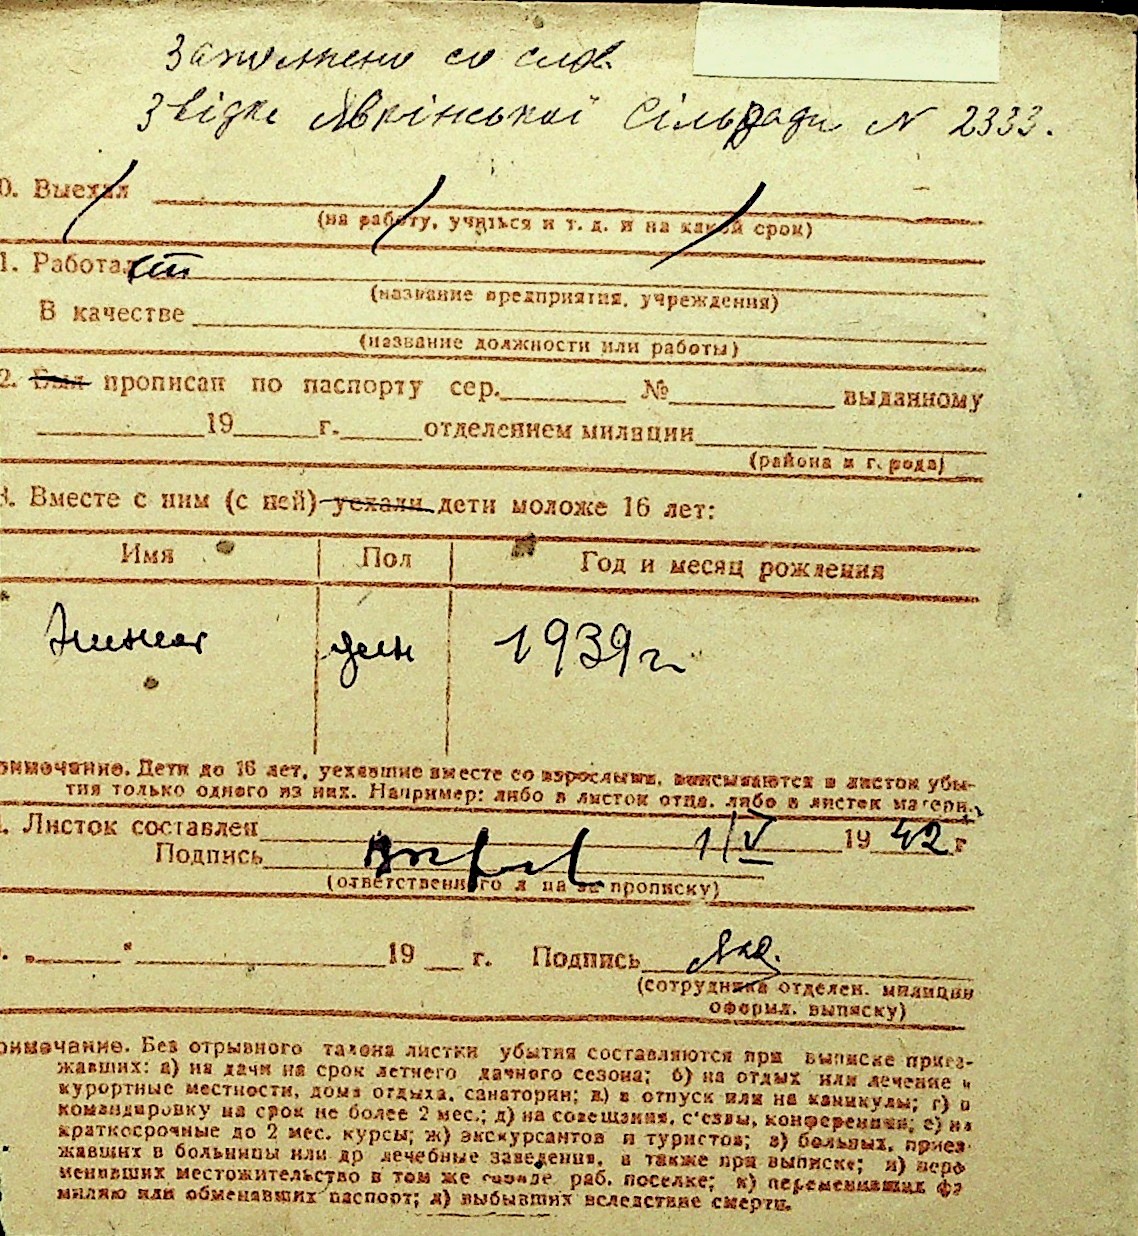 Заполнено со слов.
Звідка Явкінської Сільради N 2333.
0. Выехал
(на работу, учиться и т. д. и на какой срок)
1. Работал
(название предприятия, учреждения)
В качестве
(название должности или работы)
2. Был прописан по паспорту сер. № выданному
19 г. отделением милиции
(района и города)
3. Вместе с ним (с ней) уехали дети моложе 16 лет:
Имя Пол Год и месяц рождения
жен 1939 г.
римечание. Дети до 16 лет, уехавшие вместе со взрослыми, вписываются в листок убы-
тия только одного из них. Например: либо в листок отца, либо в листок матери.
. Листок составлен 1/V 1942 г
Подпись
(ответственного лица за прописку)
. „ " 19 г. Подпись
(сотрудника отделен. милиции
оформл. выписку)
римечание. Без отрывного талона листки убытия составляются при выписке приез-
жавших: а) на дачи на срок летнего дачного сезона; б) на отдых или лечение в
курортные местности, дома отдыха, санатории; в) в отпуск или на каникулы; г) в
командировку на срок не более 2 мес.; д) на совещания, с'езды, конференции; е) на
краткосрочные до 2 мес. курсы; ж) экскурсантов и туристов; з) больных, приез-
жавших в больницы или др лечебные заведения, а также при выписке; и) пере
менивших местожительство в том же городе, раб. поселке; к) переменивших фа
милию или обменавших паспорт; л) выбывших вследствие смерти.